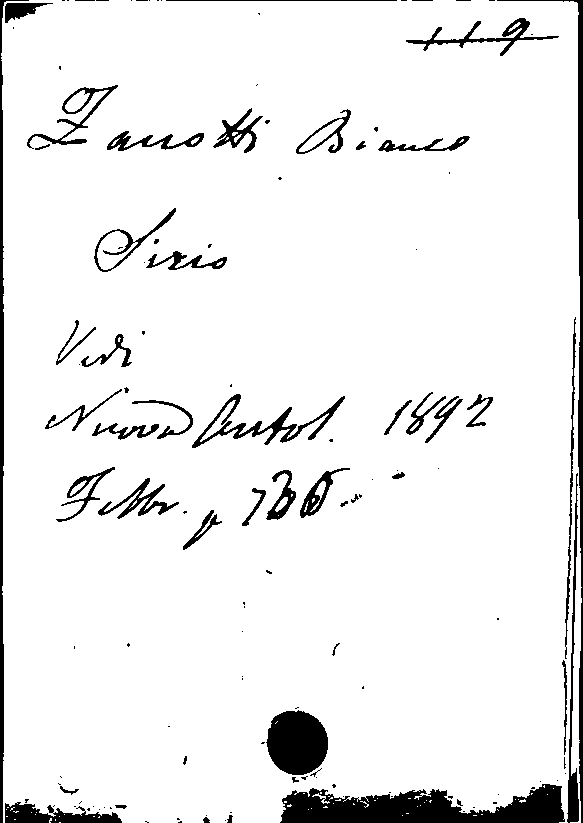 119
Zanotti Bianco
Sirio
Vedi
Nuova Antol. 1892
Febbr. p